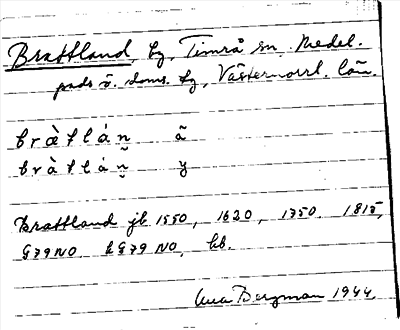 Brattland, by, Timrå sn, Medel-
pads ö. doms. by, Västernorrl. län.
bràtlán̰ ã
bràtlán̰ y
Brattland jb 1550, 1620, 1750. 1815,
G79NO. kG79NO, kb.
Bergman 1944.